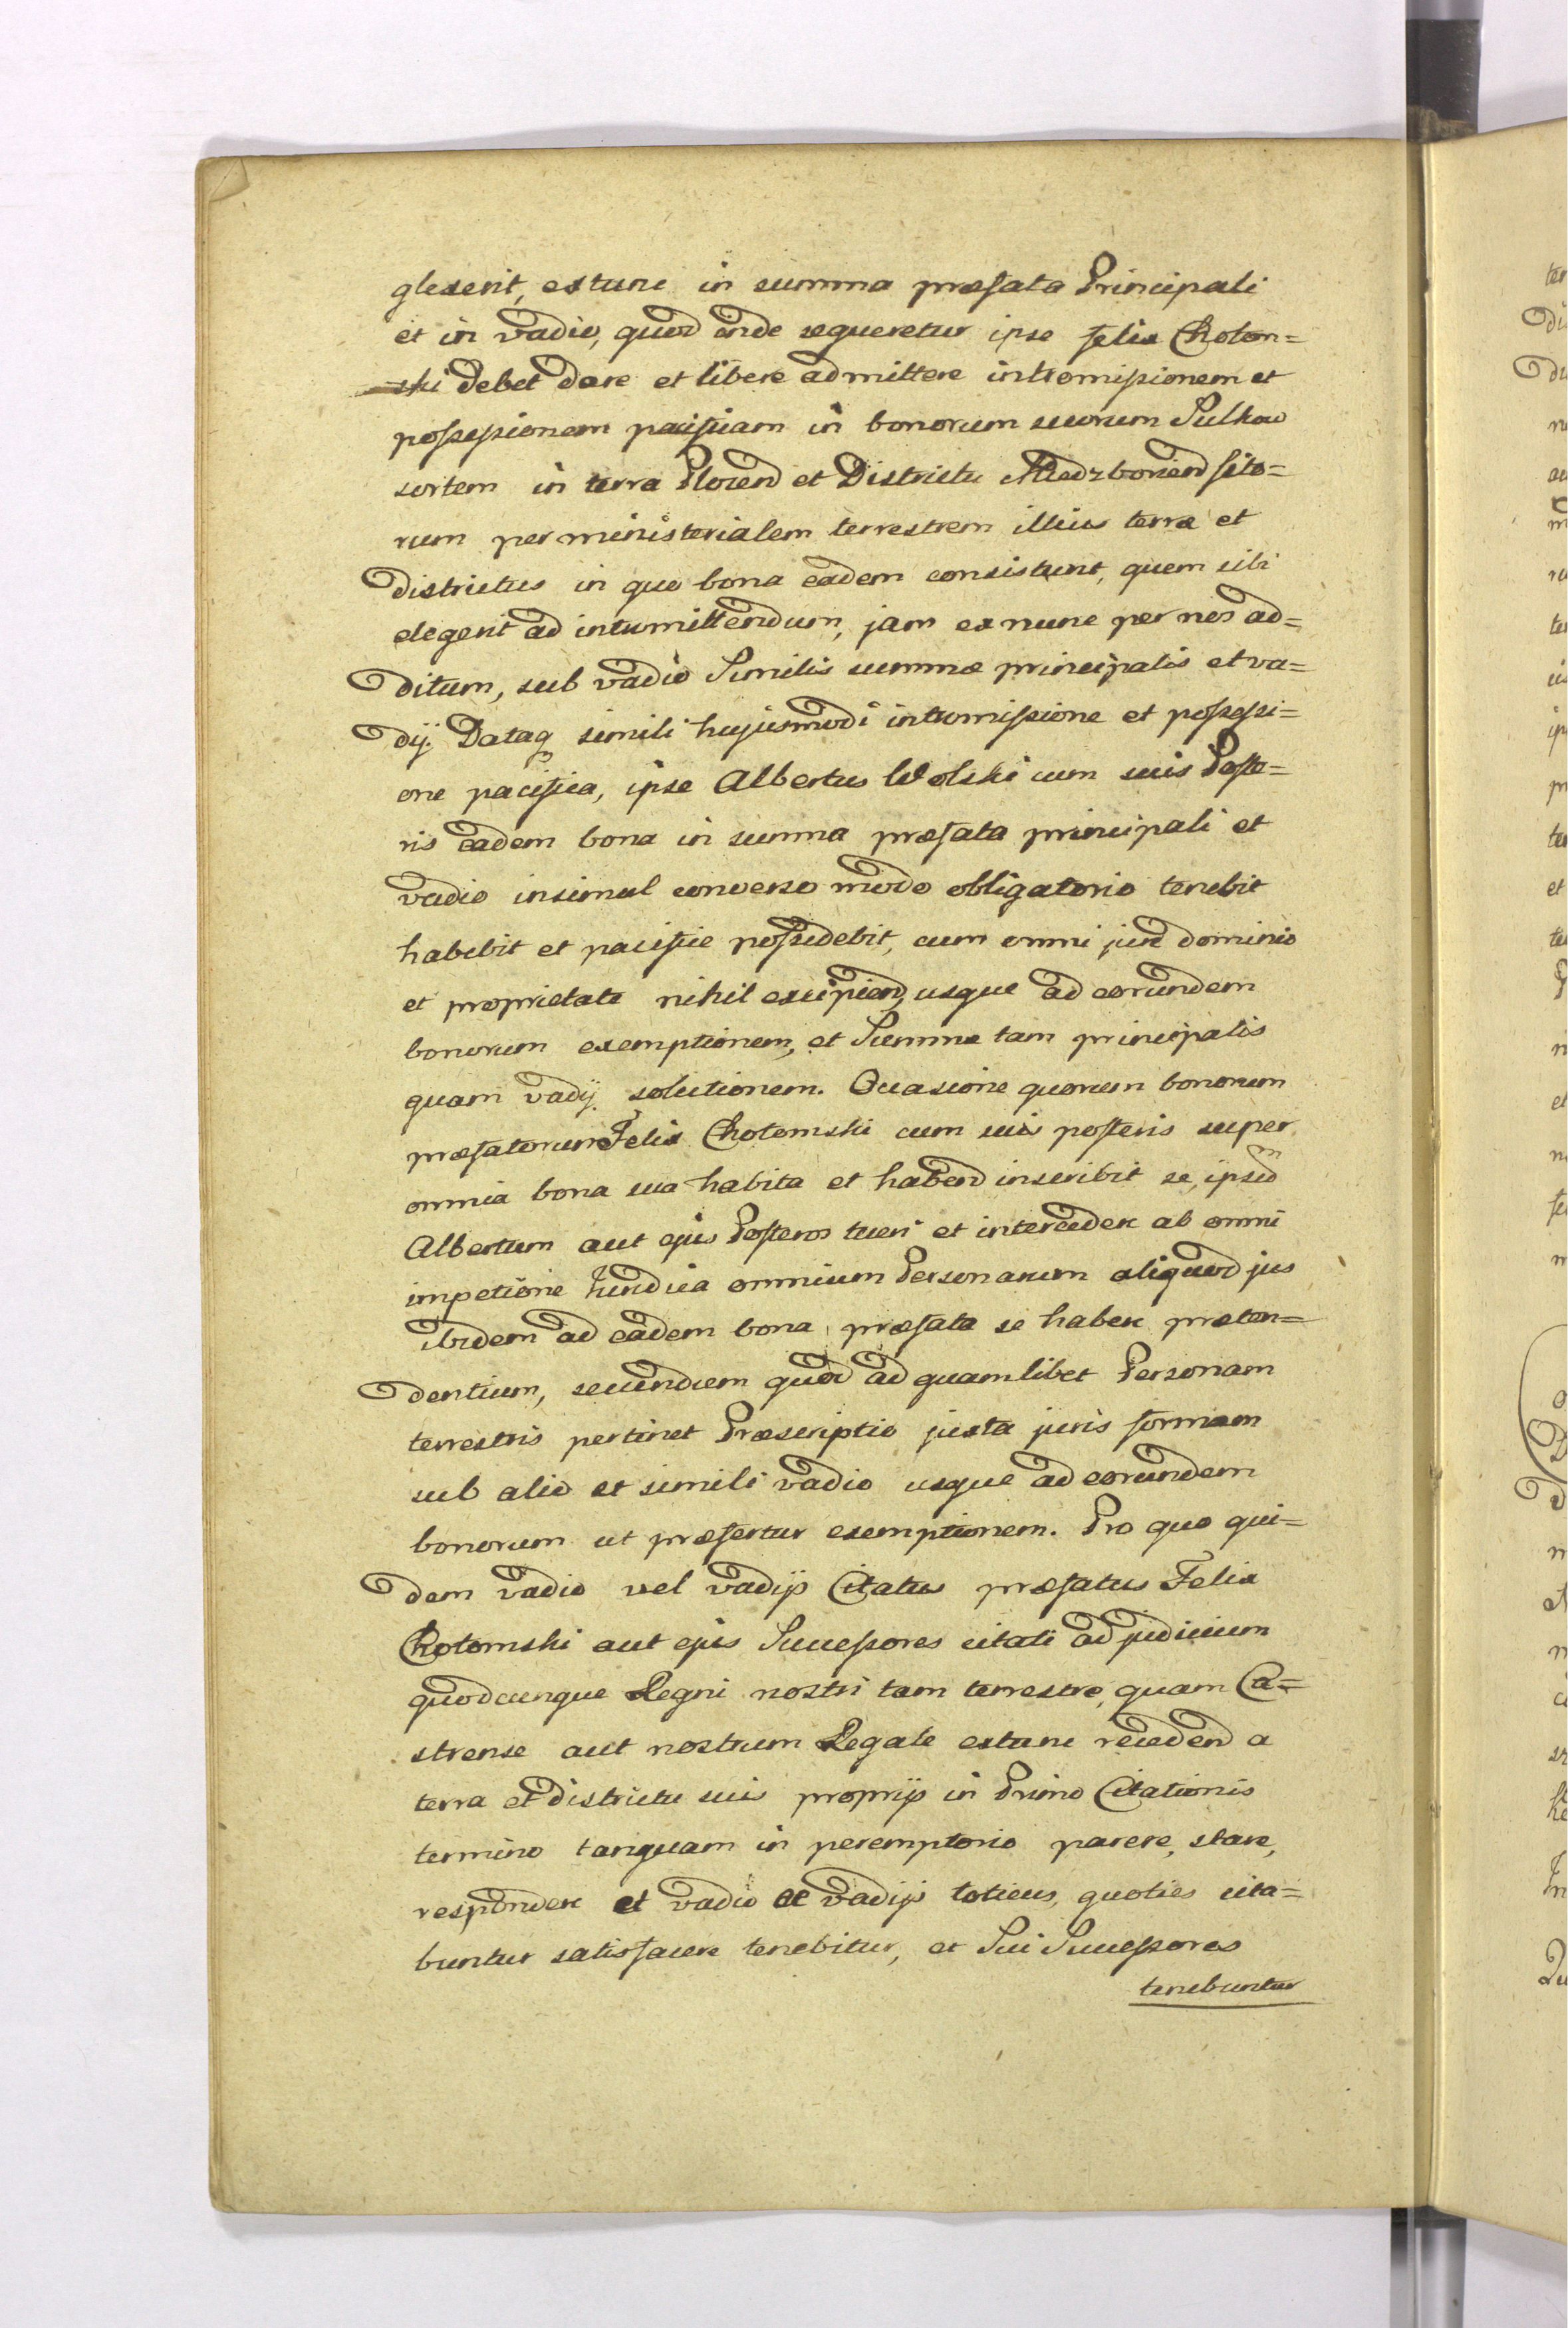 glexerit, extunc in summa præfata Principali
et in vadio, quod inde sequeretur ipse Felix Chotom=
=ski debet dare et libere admittere intromissionem et
possessionem pacificam in bonorum suorum Sulkow
sortem in terra Plocend et Districtu Miedzboriend sito=
rum per ministerialem terrestrem illius terræ et
districtus in quo bona eadem consistunt, quem sibi
elegerit ad intromittendum, jam ex nunc per nos ad=
ditum, sub vadio Similis summæ principalis et va=
dij. Dataq simili hujusmodi intromissione et possessi=
one pacifica, ipse Albertus Wolski cum suis Poste=
ris eadem bona in summa præfata principali et
vadio insimul converso modo obligatorio tenebit
habebit et pacifice possidebit, cum omni jure dominio
et proprietate nihil excipiend, usque ad eorundem
bonorum exemptionem, et Summæ tam principalis
quam vadij solutionem. Occasione quorum bonorum
præfatorum Felix Chotomski cum suis posteris super
omnia bona sua habita et habend inscribit se, ipsum
Albertum aut ejus Posteros tueri et intercedere ab omni
impetitione juridica omnium Personarum aliquod jus
ibidem ad eadem bona præfata se habere præten=
dentium, secundum quod ad quamlibet Personam
terrestris pertinet Præscriptio juxta juris formam
sub alio et simili vadio usque ad eorundem
bonorum ut præfertur exemptionem. Pro quo qui=
dem vadio vel vadijs Citatus præfatus Felix
Chotomski aut ejus Successores citati ad judicium
quodcunque Regni nostri tam terrestre, quam Ca=
strense aut nostrum Regale extunc recedend a
terra et districtu suis proprijs in Primo Citationis
termino tanquam in peremptorio parere, stare,
respondere et vadio ac vadijs toties, quoties cita=
buntur satisfacere tenebitur, et Sui Successores
tenebuntur